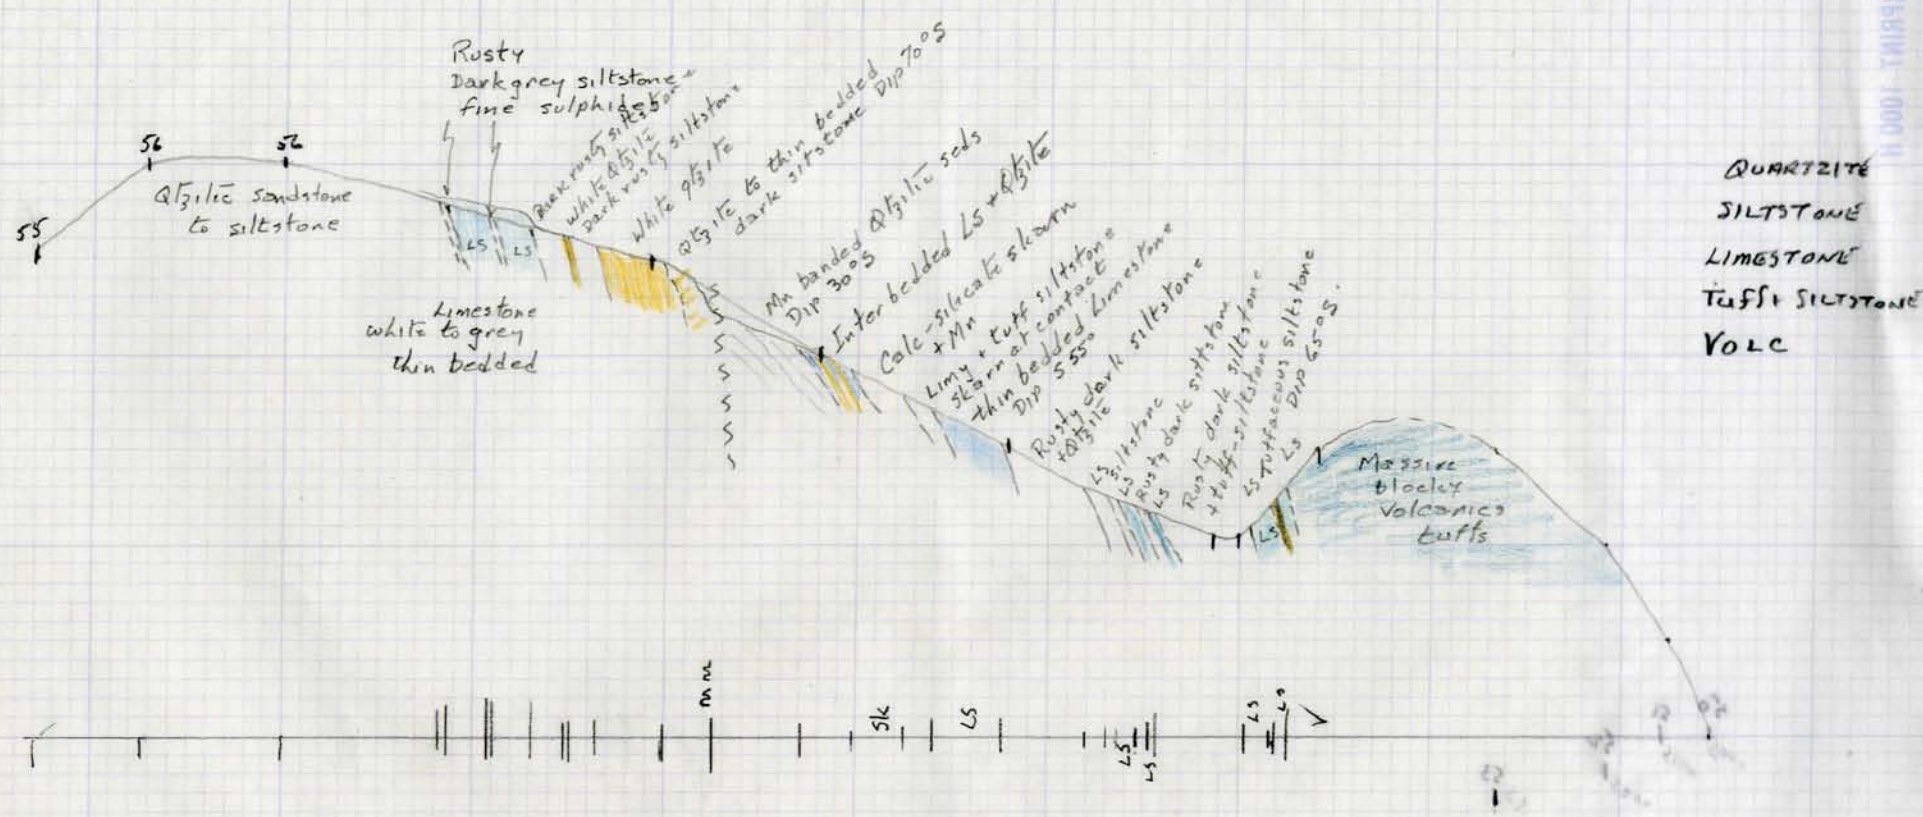 Rusty
Dark grey siltstone +
fine sulphides
56
56
55
Qtzitic sandstone
to siltstone
LS
LS
Limestone
white to grey
thin bedded
Dark rusty siltstone
White Qtzite
Dark rusty siltstone
White qtzite
Qtzite to thin bedded
dark siltstone Dip 70°S
Mn banded Qtzitic seds
Dip 30°S
Inter bedded LS + Qtzite
Calc-silicate skarn
+ Mn
Limy + tuff siltstone
skarn at contact
thin bedded Limestone
Dip S 55°
Rusty dark siltstone
+ Qtzite
LS
siltstone
LS
Rusty dark siltstone
LS
Rusty dark siltstone
+ tuff-siltstone
LS
Tuffaceous siltstone
LS
Dip 65°S.
LS
Massive
blocky
Volcanics
tuffs
QUARTZITE
SILTSTONE
LIMESTONE
Tuff + SILTSTONE
VOLC
Sk
LS
LS
LS
LS
LS
V